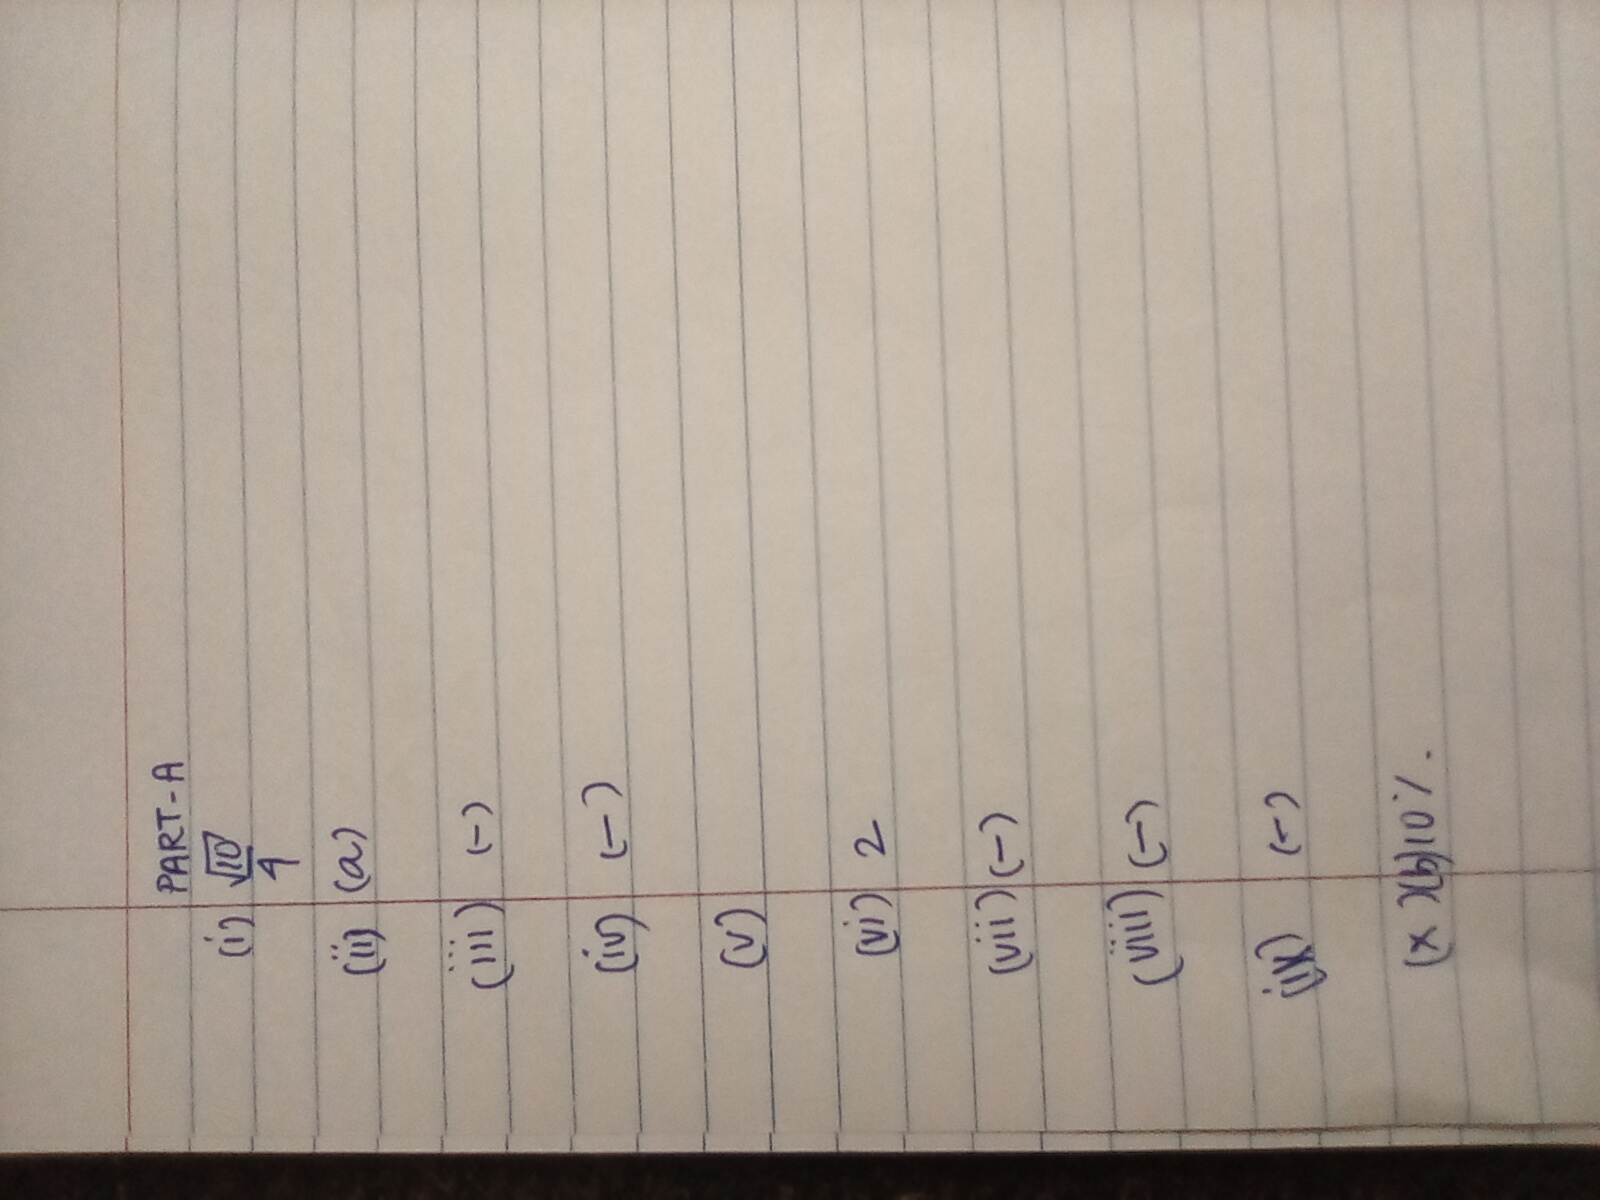 PART-A
(i) √10
4
(ii) (a)
(iii) (-)
(iv) (-)
(v)
(vi) 2
(vii) (-)
(viii) (-)
(ix) (-)
(x) (b) 10%.